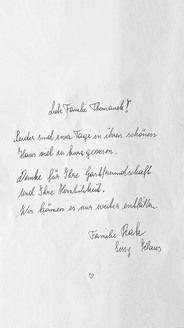 Liebe Familie Thomanek!
Leider sind zwei Tage in ihrem schönen
Haus viel zu kurz gewesen.
Danke für Ihre Gastfreundschaft
und Ihre Herzlichkeit.
Wir können es nur weiter empfehlen.
Familie Rak
Sissy Klaus